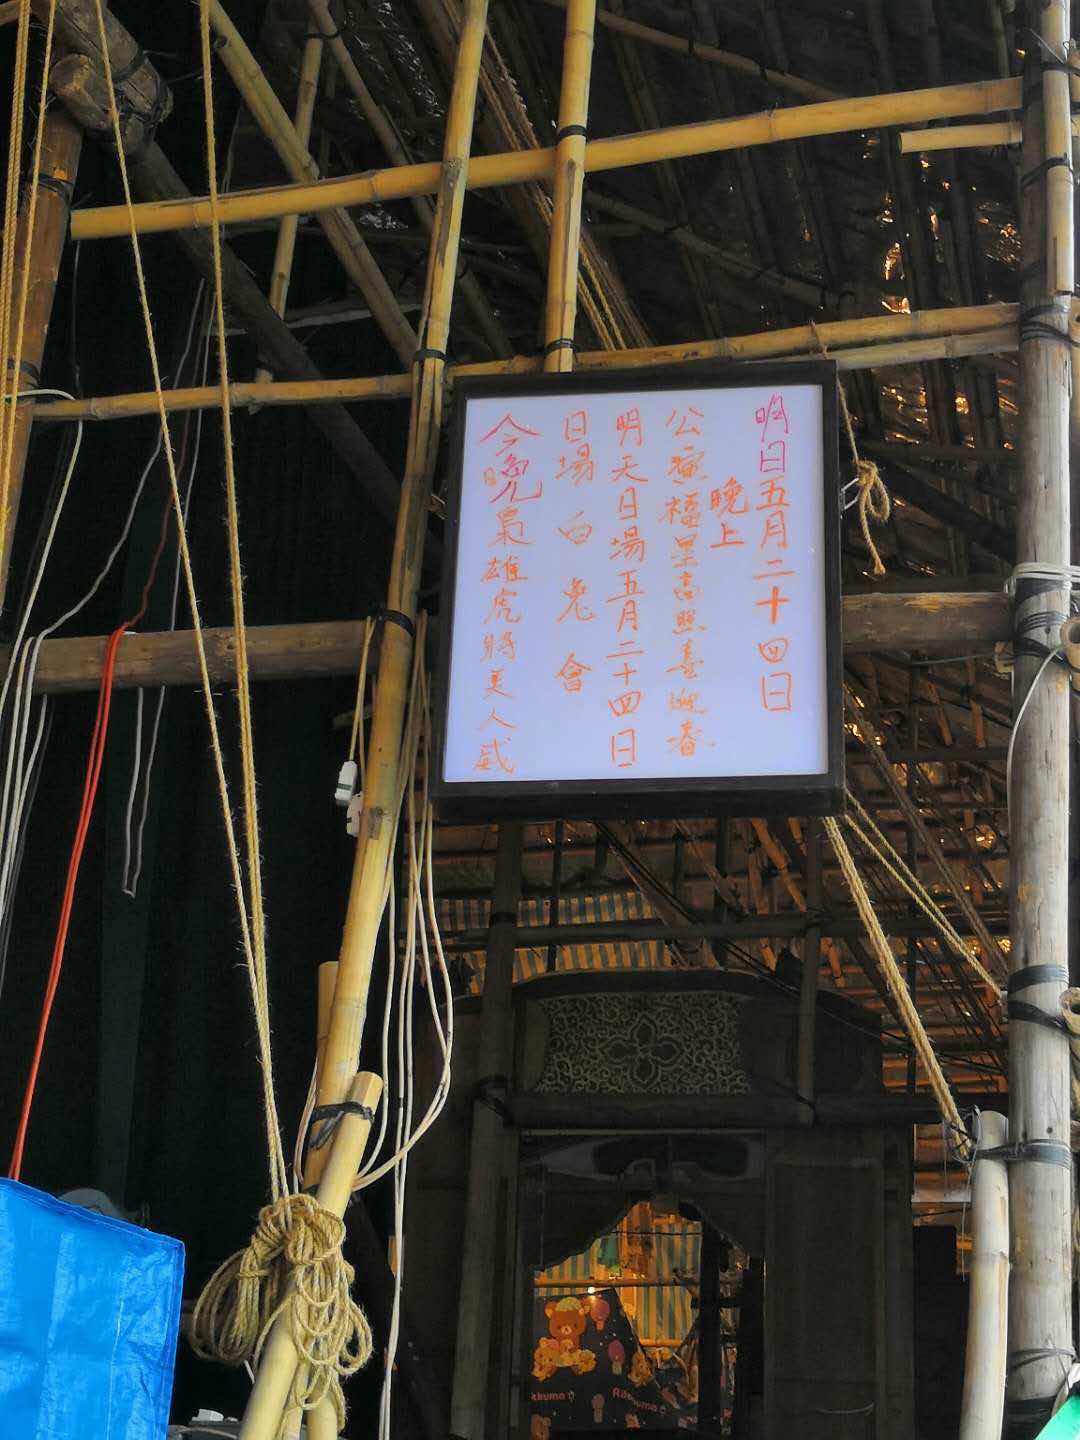 明日五月二十四日
晚上
公演福星高照喜迎春
明天日場五月二十四日
日場白兔會
今晚梟雄虎將美人威
Rilakkuma